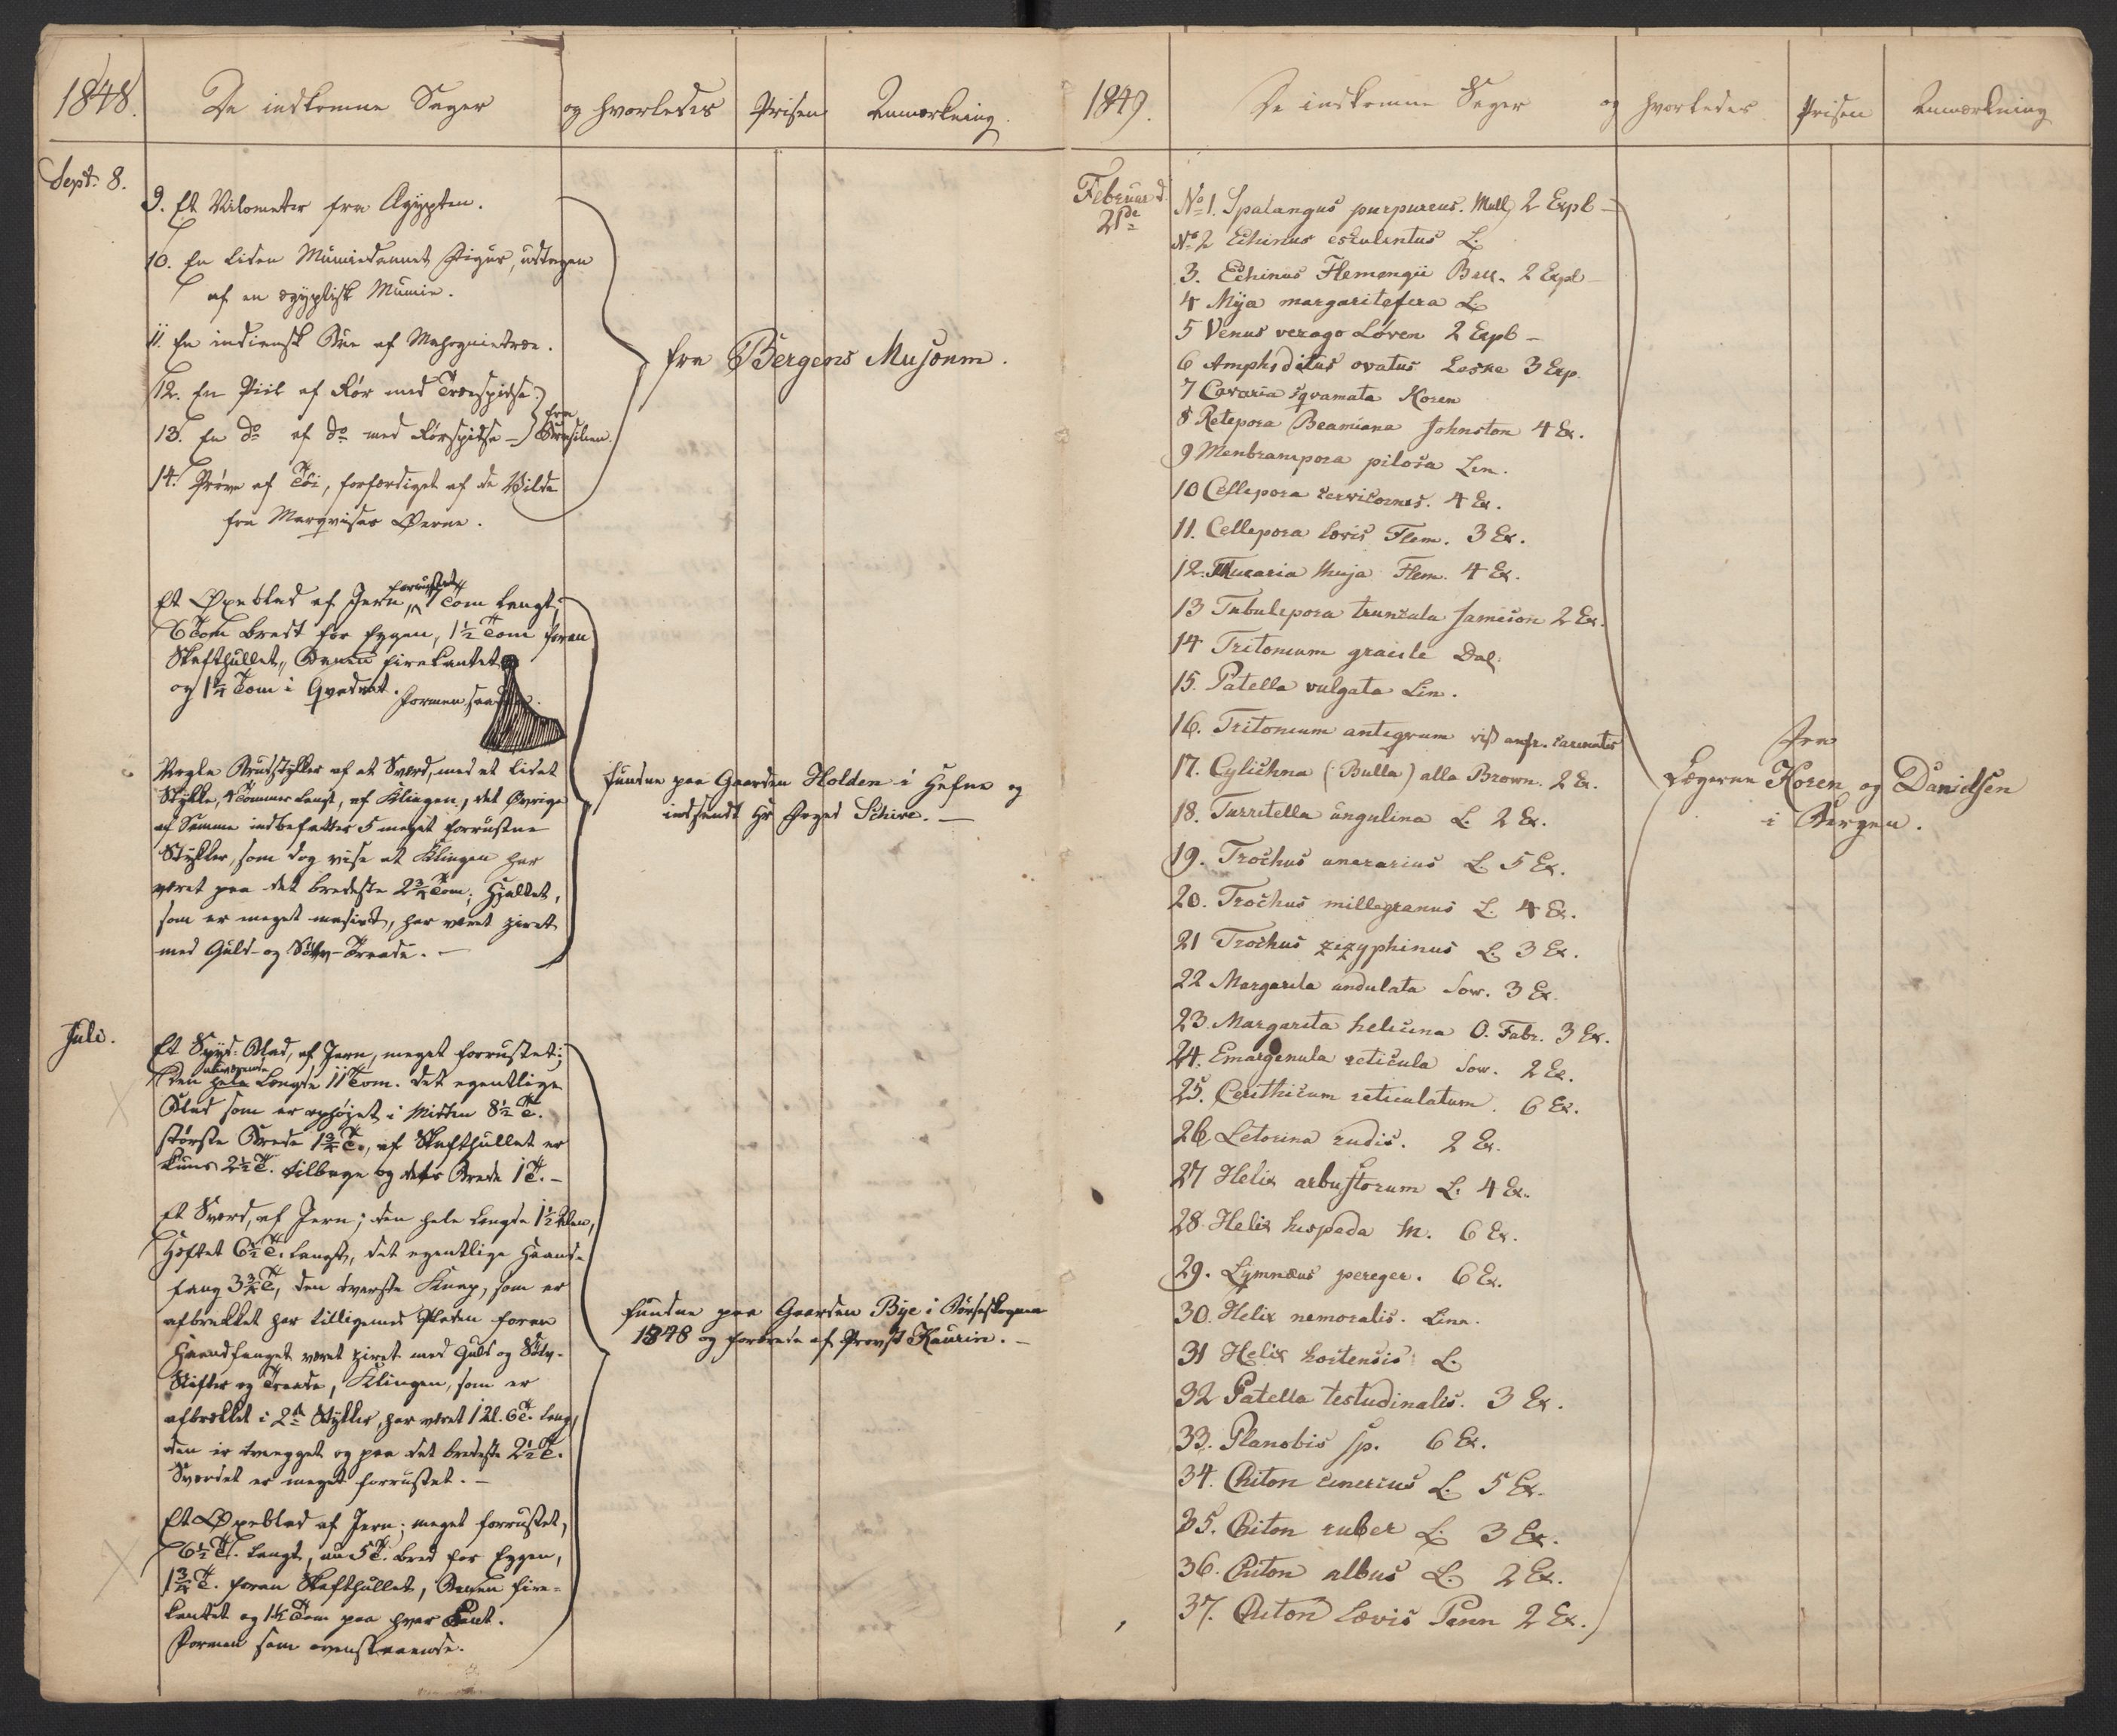 1848.
De indkomne Sager
og hvorledes
Prisen
Anmærkning.
Sept. 8.
9. Et Nilometer fra Ægypten.
10. En liden Mumiedannet Figur, udtagen
af en ægyptisk Mumie.
11. En indiansk Bue af Mahognietræe.
12. En Piil af Rør med Træespidse.
13. En do af do med Rørspidse –
fra
Brasilien.
14. Prøve af Tøi, forfærdiget af de Vilde
fra Marqvisas Øerne.
fra Bergens Musæum.
Et Øxeblad af Jern, forrustet, 7 Tom langt,
6 Tom bredt for Eggen, 1½ Tom foran
Skafthullet, Banen firekantet
og 1¼ Tom i Qvadrat. Formen saadan.
Nogle Brudstykker af et Sværd, med et lidet
Stykke, 4 Tommer langt, af Klingen, det Øvrige
af Samme indbefatter 5 meget forrustne
Stykker, som dog vise at Klingen har
været paa det bredeste 2¾ Tom; Hjaltet,
som er meget masivt, har været ziret
med Guld- og Sølv-Traade. –
fundne paa Gaarden Holden i Hefne og
indsendt Hr Foged Schive. –
Juli.
Et Spyd-Blad, af Jern, meget forrustet;
den hele nuværende Længde 11 Tom. det egentlige
Blad som er ophøiet i Midten 8½ T.
største Brede 1¾ T., af Skafthullet er
kuns 2½ T. tilbage og dets Brede 1 T. –
Et Sværd, af Jern; den hele Længde 1½ Alen,
Hæftet 6½ T. langt, det egentlige Haand-
fang 3¾ T, den øverste Knap, som er
afbrækket har tilligemed Pladen foran
Haandfanget været ziret med Guld og Sølv-
Stifter og Traade, Klingen, som er
afbrækket i 2de Stykker, har været 1 Al. 6 T. lang,
den er tveegget og paa det bredeste 2½ T.
Sværdet er meget forrustet. –
Et Øxeblad af Jern; meget forrustet,
6½ T. langt, 5 T. bred for Eggen,
1¾ T. foran Skafthullet, Banen fire-
kantet og 1¼ Tom paa hver Kant.
Formen som ovenstaaende.
fundne paa Gaarden Bye i Børseskognen
1848 og foræret af Provst Kaurin. –
1849.
De indkomne Sager
og hvorledes
Prisen
Anmærkning
Februar d.
21de
No 1. Spatangus purpureus. Mull, 2 Expl –
No 2 Echinus esculentus L.
3. Echinus Flemengii Ball. 2 Expl –
4 Mya margaritefera L.
5 Venus verago Loven 2 Expl –
6 Amphiditus ovatus Leske 3 Exp.
7 Cavaria sqvamata Koren
8 Retepora Beamiana Johnston 4 Ex.
9 Menbrampora pilosa Lin.
10 Cellepora cervicornes. 4 Ex.
11. Cellepora lævis Flem. 3 Ex.
12. Thuraria thuja Flem. 4 Ex.
13 Tubulepora truncata Jameson 2 Ex.
14 Tritonium gracile Dal.
15. Patella vulgata Lin.
16. Tritonium antiqvum anfr. carinatis
17. Cylichna (Bulla) alba Brown. 2 Ex.
18. Turritella ungulina L. 2 Ex.
19. Trochus cinerarius L. 5 Ex.
20. Trochus millegranus L. 4 Ex.
21 Trochus zizyphinus L. 3 Ex.
22 Margarita undulata Sow. 3 Ex.
23. Margarita helicina O. Fabr. 3 Ex.
24. Emargenula reticula Sow. 2 Ex.
25. Cerithicum reticulatum. 6 Ex.
26. Letorina rudis. 2 Ex.
27 Helix arbustorum L. 4 Ex.
28 Helix hispeda M. 6 Ex.
29. Lymnæus pereger. 6 Ex.
30. Helix nemoralis. Linn.
31 Helix hortensis L.
32 Patella testudinalis. 3 Ex.
33. Planobis sp. 6 Ex.
34. Chiton cinerius L. 5 Ex.
35. Chiton ruber L. 3 Ex.
36. Chiton albus L. 2 Ex.
37. Chiton lævis Penn 2 Ex.
fra
Lægerne Koren og Danidsen
i Bergen.